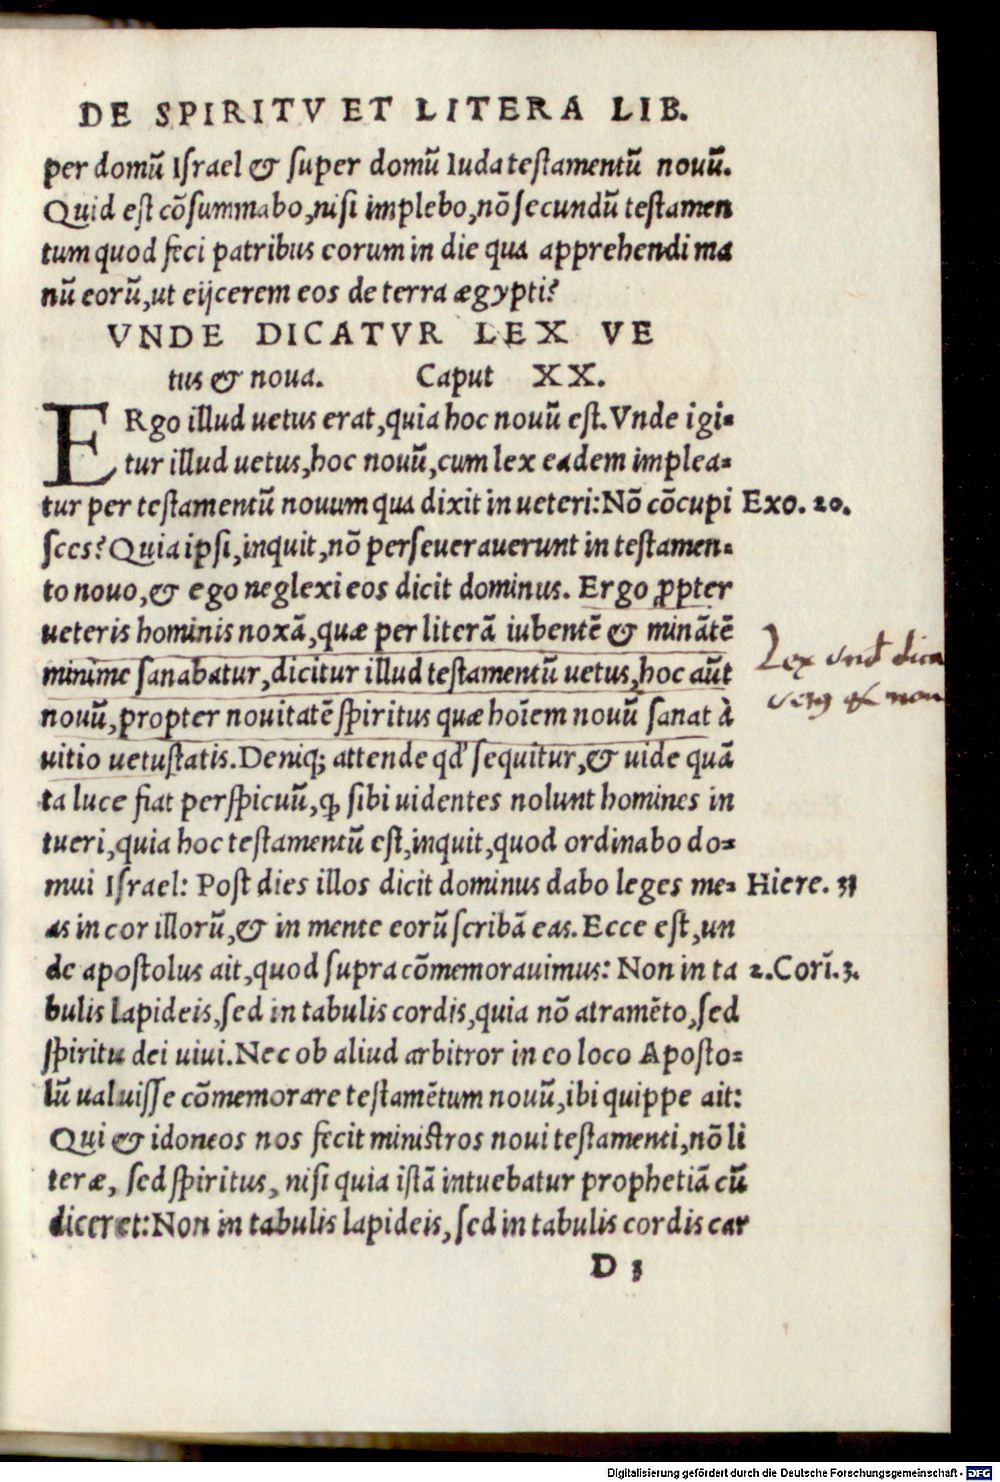 DE SPIRITV ET LITERA LIB.
per domū Israel & super domū Iuda testamentū nouū.
Quid est cōsummabo, nisi implebo, nō secundū testamen
tum quod feci patribus eorum in die qua apprehendi ma
nū eorū, ut eijcerem eos de terra ægypti?
VNDE DICATVR LEX VE
tus & noua. Caput XX.
ERgo illud uetus erat, quia hoc nouū est. Vnde igi-
tur illud uetus, hoc nouū, cum lex eadem implea-
tur per testamentū nouum qua dixit in ueteri: Nō cōcupi Exo. 20.
sces? Quia ipsi, inquit, nō perseuerauerunt in testamen-
to nouo, & ego neglexi eos dicit dominus. Ergo ꝓpter
ueteris hominis noxā, quæ per literā iubentē & minātē
minime sanabatur, dicitur illud testamentū uetus, hoc aūt
nouū, propter nouitatē spiritus quæ hoīem nouū sanat à
uitio uetustatis. Deniq; attende qđ sequitur, & uide quā
ta luce fiat perspicuū, ꝙ sibi uidentes nolunt homines in
tueri, quia hoc testamentū est, inquit, quod ordinabo do-
mui Israel: Post dies illos dicit dominus dabo leges me- Hiere. 31
as in cor illorū, & in mente eorū scribā eas. Ecce est, un
de apostolus ait, quod supra cōmemorauimus: Non in ta 2. Corī. 3.
bulis lapideis, sed in tabulis cordis, quia nō atramēto, sed
spiritu dei uiui. Nec ob aliud arbitror in eo loco Aposto-
lū ualuisse cōmemorare testamētum nouū, ibi quippe ait:
Qui & idoneos nos fecit ministros noui testamenti, nō li
teræ, sed spiritus, nisi quia istā intuebatur prophetiā cū
diceret: Non in tabulis lapideis, sed in tabulis cordis car
D 3
Lex und dica
Digitalisierung gefördert durch die Deutsche Forschungsgemeinschaft - DFG